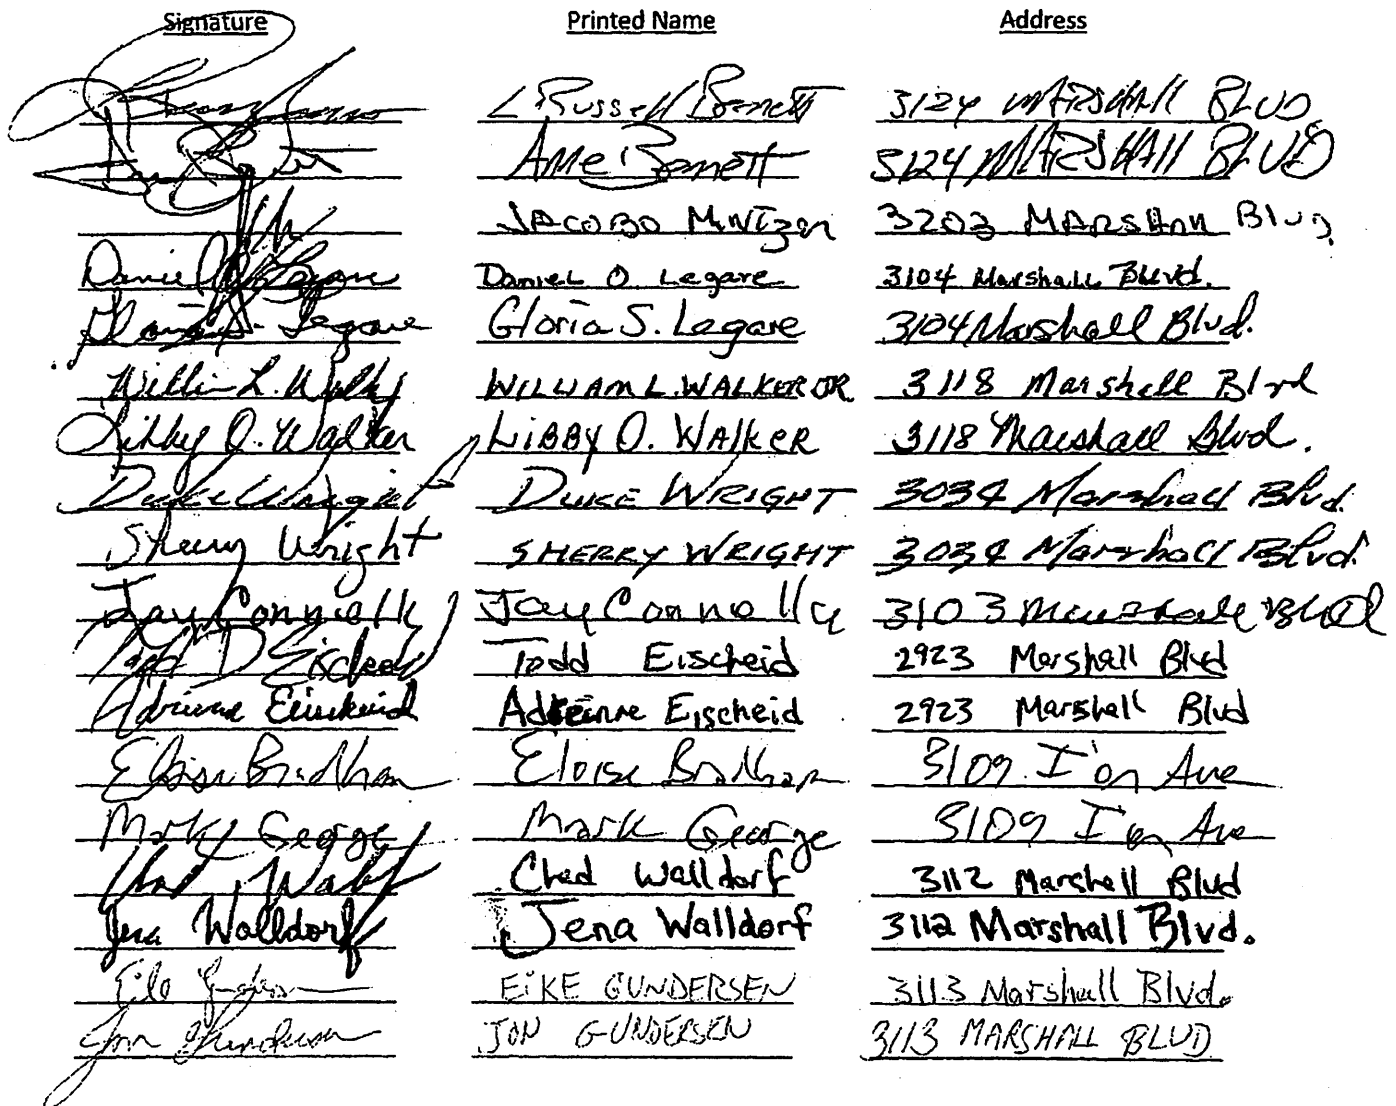 Signature Printed Name Address
L Russell Bennett 3124 MARSHALL BLVD
Anne Bennett 3124 MARSHALL BLVD
JACOBO MINTZER 3203 MARSHALL Blvd
Daniel O. Legare 3104 Marshall Blvd.
Gloria S. Legare Gloria S. Legare 3104 Marshall Blvd.
William L. Walker WILLIAM L. WALKER JR 3118 Marshall Blvd
Libby O. Walker LIBBY O. WALKER 3118 Marshall Blvd.
Duke Wright DUKE WRIGHT 3034 Marshall Blvd.
Sherry Wright SHERRY WRIGHT 3034 Marshall Blvd.
Jay Connolly Jay Connolly 3103 Marshall Blvd
Todd D Eischeid Todd Eischeid 2923 Marshall Blvd
Adrienne Eischeid Adrienne Eischeid 2923 Marshall Blvd
Eloise Bradham Eloise Bradham 3109 I'on Ave
Mark George Mark George 3109 I'on Ave
Chad Walldorf 3112 Marshall Blvd
Jena Walldorf Jena Walldorf 3112 Marshall Blvd.
EIKE GUNDERSEN 3113 Marshall Blvd.
Jon Gundersen JON GUNDERSEN 3113 MARSHALL BLVD